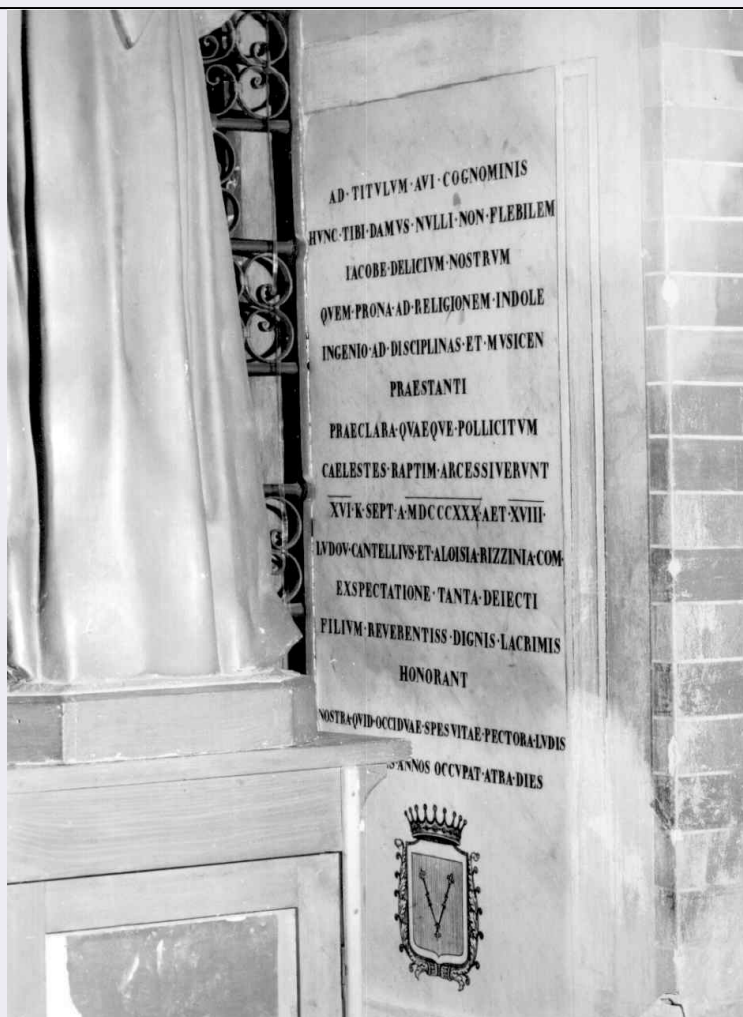 AD · TITVLVM · AVI · COGNOMINIS
HVNC · TIBI · DAMVS · NVLLI · NON · FLEBILEM
IACOBE · DELICIVM · NOSTRVM
QVEM · PRONA · AD · RELIGIONEM · INDOLE
INGENIO · AD · DISCIPLINAS · ET · MVSICEN
PRAESTANTI
PRAECLARA · QVAEQVE · POLLICITVM
CAELESTES · RAPTIM · ARCESSIVERVNT
XVI · K · SEPT · A · MDCCCXXX · AET · XVIII ·
LVDOV · CANTELLIVS · ET · ALOISIA · RIZZINIA · COM ·
EXSPECTATIONE · TANTA · DEIECTI
FILIVM · REVERENTISS · DIGNIS · LACRIMIS
HONORANT
NOSTRA · QVID · OCCIDVAE · SPES VITAE · PECTORA · LVDIS
ANNOS OCCVPAT · ATRA · DIES